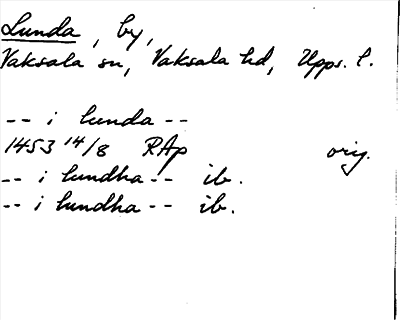 Lunda, by,
Vaksala sn, Vaksala hd, Upps. l.
-- i lunda --
1453 14/8 RAp orig.
-- i lundha -- ib.
-- i lundha -- ib.